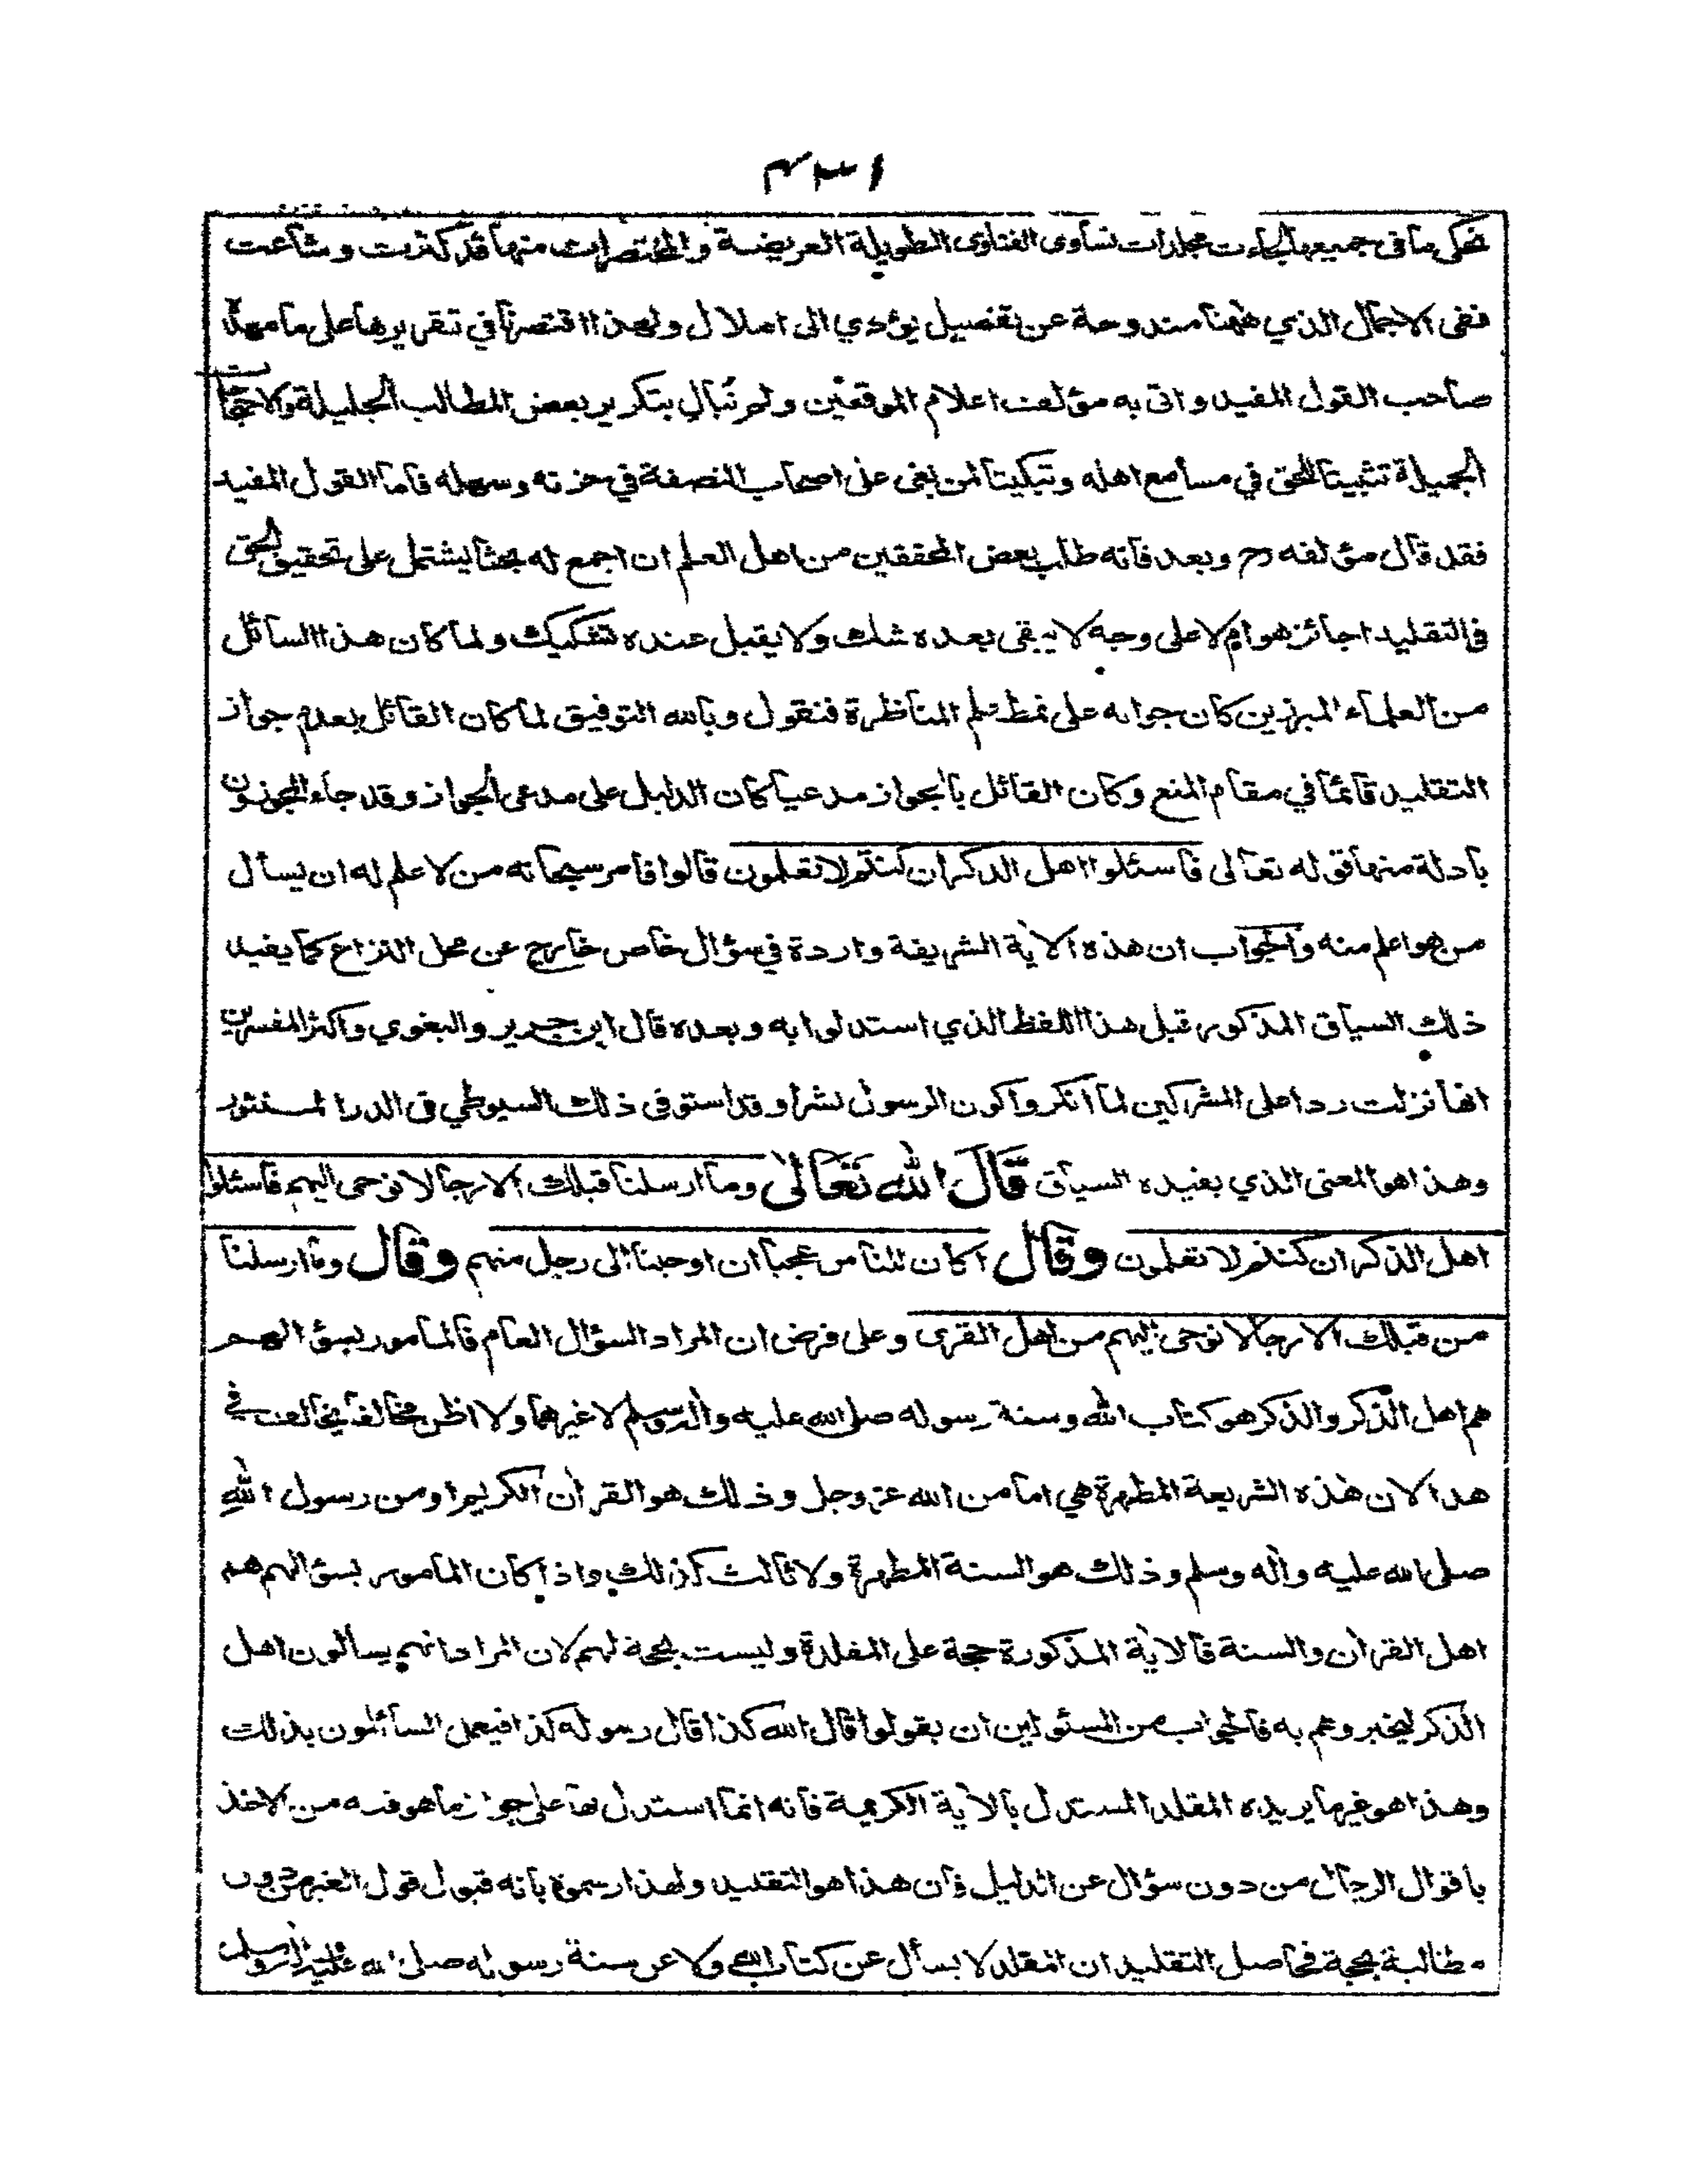 ٤٣١
نحكي ما في جميعها لجاءت مجلدات تساوى الفتاوى الطويلة العريضة والمختصرات منها قد كثرت وشاعت
ففى الاجمال الذي ههنا مندوحة عن تفصيل يؤدي الى املال ولهذا اقتصرنا في تقريرها على ما مهده
صاحب القول المفيد واتى به مؤلف اعلام الموقعين ولم نبال بتكرير بعض المطالب الجليلة والاحتجاجات
الجميلة تثبيتا للحق في مسامع اهله وتبكيتا لمن بغى على اصحاب النصفة في حزنه وسهله فاما القول المفيد
فقد قال مؤلفه رح وبعد فانه طلب بعض المحققين من اهل العلم ان اجمع له بحثا يشتمل على تحقيق الحق
في التقليد اجائز هو ام لا على وجه لا يبقى بعده شك ولا يقبل عنده تشكيك ولما كان هذا السائل
من العلماء المبرزين كان جوابه على نمط علم المناظرة فنقول وبالله التوفيق لما كان القائل بعدم جواز
التقليد قائما في مقام المنع وكان القائل بالجواز مدعيا كان الدليل على مدعى الجواز وقد جاء المجوزون
بادلة منها قوله تعالى فاسئلوا اهل الذكر ان كنتم لا تعلمون قالوا فامر سبحانه من لا علم له ان يسأل
من هو اعلم منه والجواب ان هذه الاية الشريفة واردة في سؤال خاص خارج عن محل النزاع كما يفيد
ذلك السياق المذكور قبل هذا اللفظ الذي استدلوا به وبعده قال ابن جرير والبغوي واكثر المفسرين
انها نزلت ردا على المشركين لما انكروا كون الرسول بشرا وقد استوفى ذلك السيوطي في الدر المنثور
وهذا هو المعنى الذي يفيده السياق قال الله تعالى وما ارسلنا قبلك الا رجالا نوحى اليهم فاسئلوا
اهل الذكر ان كنتم لا تعلمون وقال اكان للناس عجبا ان اوحينا الى رجل منهم وقال وما ارسلنا
من قبلك الا رجالا نوحى اليهم من اهل القرى وعلى فرض ان المراد السؤال العام فالمامور بسؤالهم
هم اهل الذكر والذكر هو كتاب الله وسنة رسوله صلى الله عليه واله وسلم لا غيرهما ولا اظن مخالفا يخالف في
هذا لان هذه الشريعة المطهرة هي اما من الله عز وجل وذلك هو القران الكريم او من رسول الله
صلى الله عليه واله وسلم وذلك هو السنة المطهرة ولا ثالث كذلك واذا كان المامور بسؤالهم هم
اهل القران والسنة فالاية المذكورة حجة على المقلدة وليست بحجة لهم لان المراد انهم يسألون اهل
الذكر ليخبروهم به فالجواب من المسئولين ان يقولوا قال الله كذا قال رسوله كذا فيعمل السائلون بذلك
وهذا هو غير ما يريده المقلد المستدل بالاية الكريمة فانه انما استدل بها على جواز ما هو فيه من الاخذ
باقوال الرجال من دون سؤال عن الدليل فان هذا هو التقليد ولهذا رسموه بانه قبول قول الغير من دون
مطالبة بحجة فحاصل التقليد ان المقلد لا يسأل عن كتاب الله ولا عن سنة رسوله صلى الله عليه واله وسلم